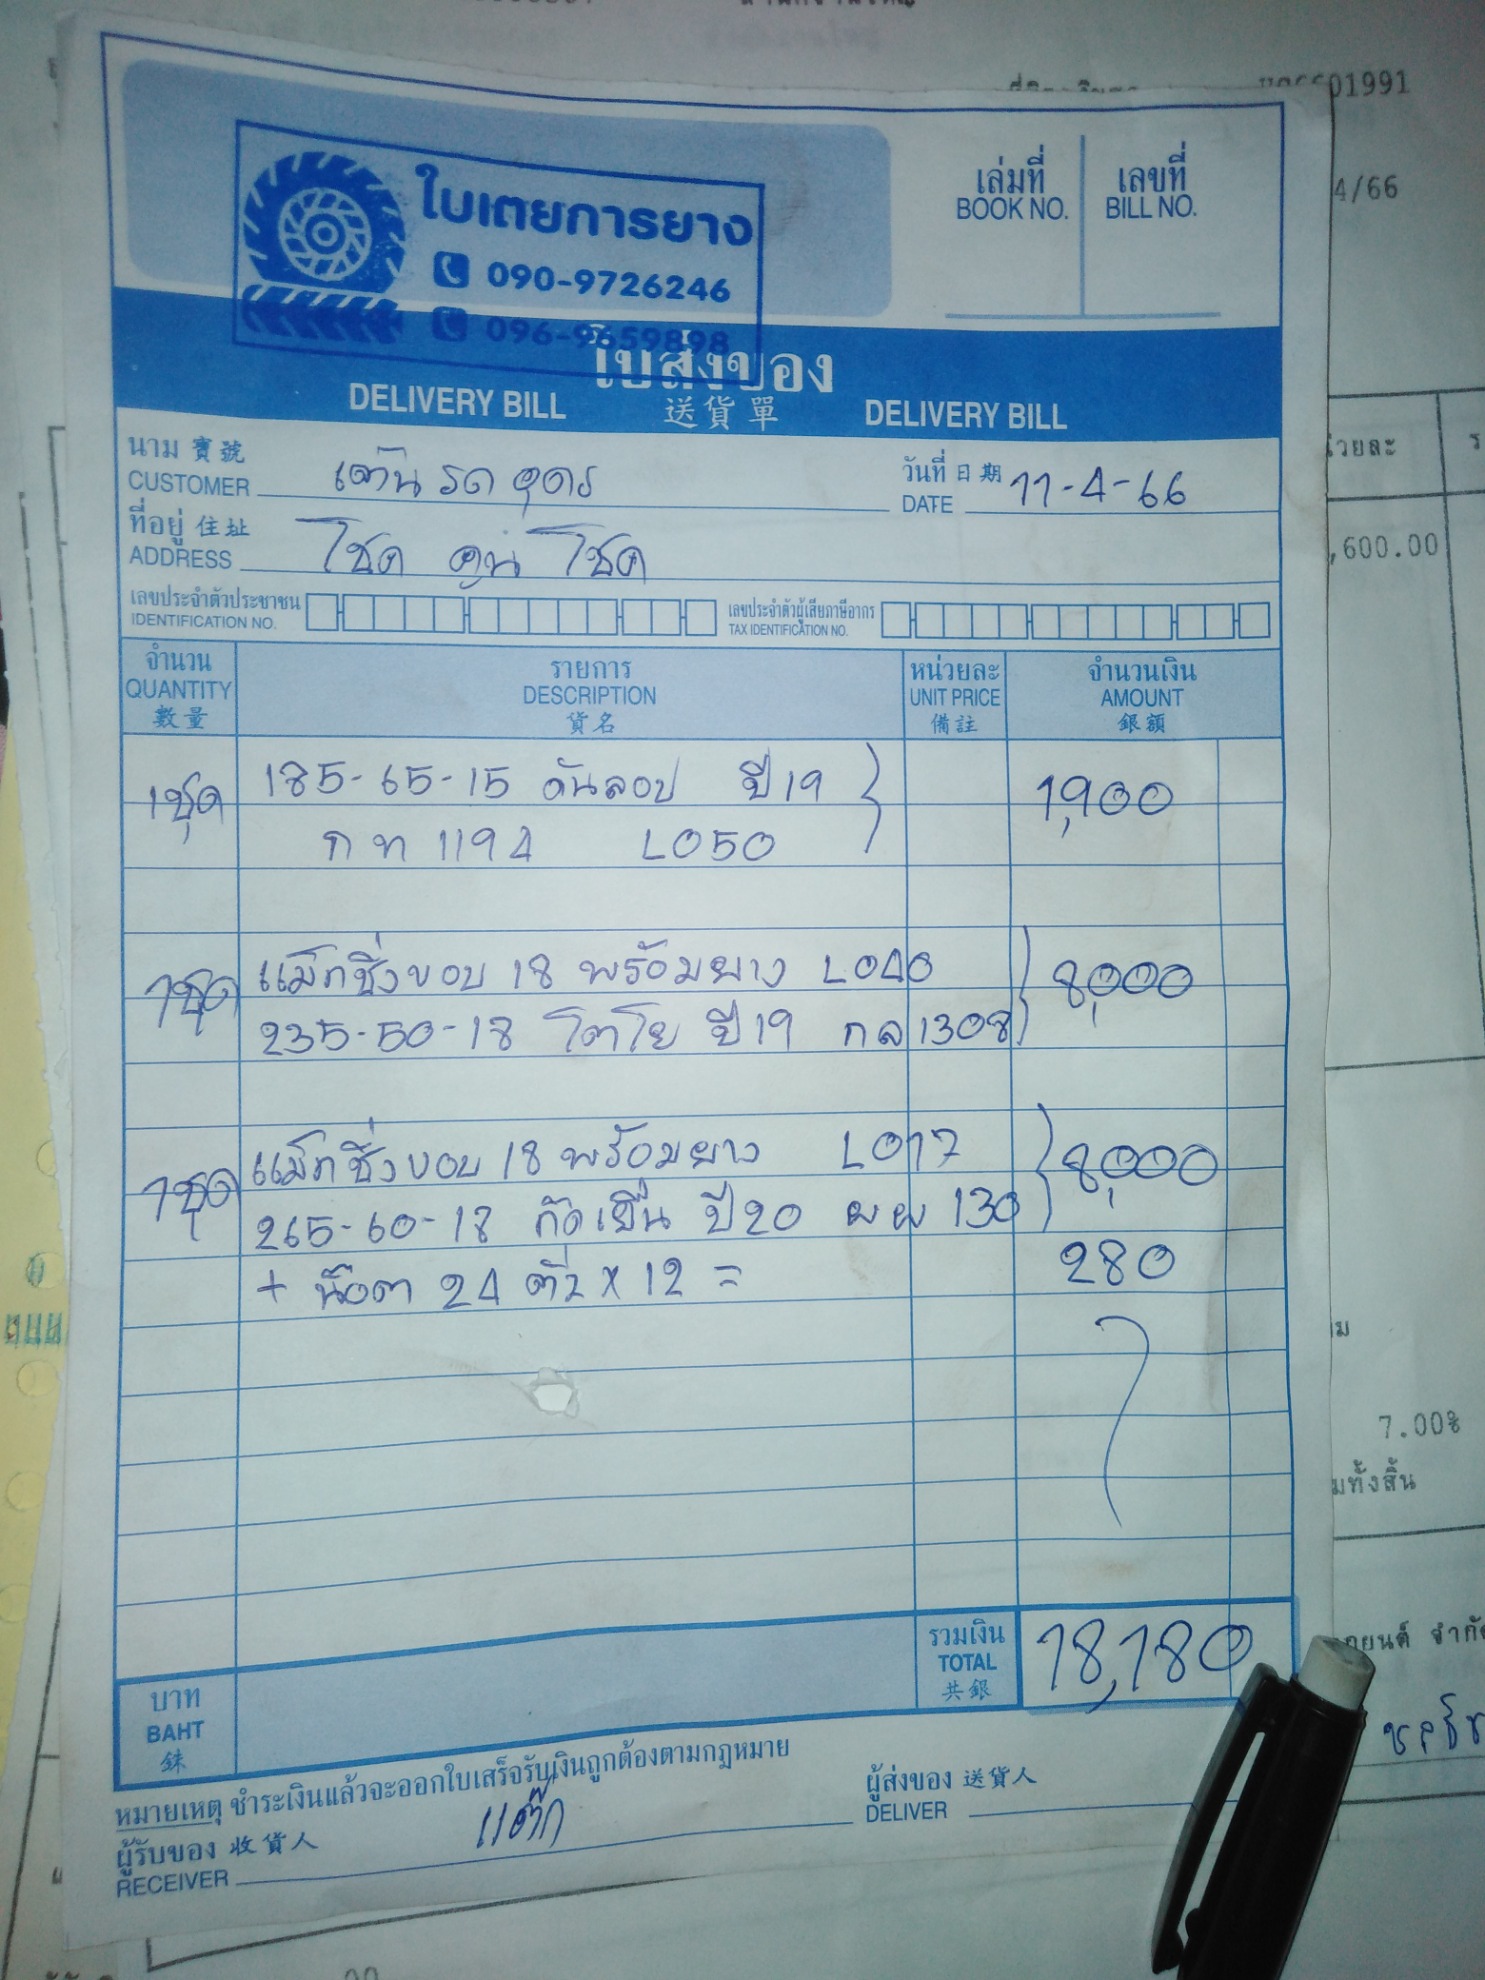 01991
4/66
ใบเตยการยาง
090-9726246
096-9659898
เล่มที่ เลขที่
BOOK NO. BILL NO.
ใบส่งของ
DELIVERY BILL 送貨單 DELIVERY BILL
นาม 寶號
CUSTOMER เต้นรถอุดร
วันที่ 日期
DATE 11-4-66
ที่อยู่ 住址
ADDRESS โชค คูน โชค
เลขประจำตัวประชาชน
IDENTIFICATION NO.
เลขประจำตัวผู้เสียภาษีอากร
TAX IDENTIFICATION NO.
จำนวน รายการ หน่วยละ จำนวนเงิน
QUANTITY DESCRIPTION UNIT PRICE AMOUNT
數量 貨名 備註 銀額
1ชุด 185-65-15 ดันลอป ปี 19 1,900
กท 1194 LO50
1ชุด แม็กซิ่งขอบ 18 พร้อมยาง LO40 8,000
235-50-18 โตโย ปี 19 กล 1308
1ชุด แม็กซิ่งขอบ 18 พร้อมยาง LO17 8,000
265-60-18 กัดเยียน ปี 20 ผผ 130
+ น๊อต 24 ตัว x 12 = 280
รวมเงิน
TOTAL 18,180
共銀
บาท
BAHT
銖
หมายเหตุ ชำระเงินแล้วจะออกใบเสร็จรับเงินถูกต้องตามกฎหมาย
ผู้รับของ 收貨人
RECEIVER แต๊ก
ผู้ส่งของ 送貨人
DELIVER
,600.00
7.00%
มทั้งสิ้น